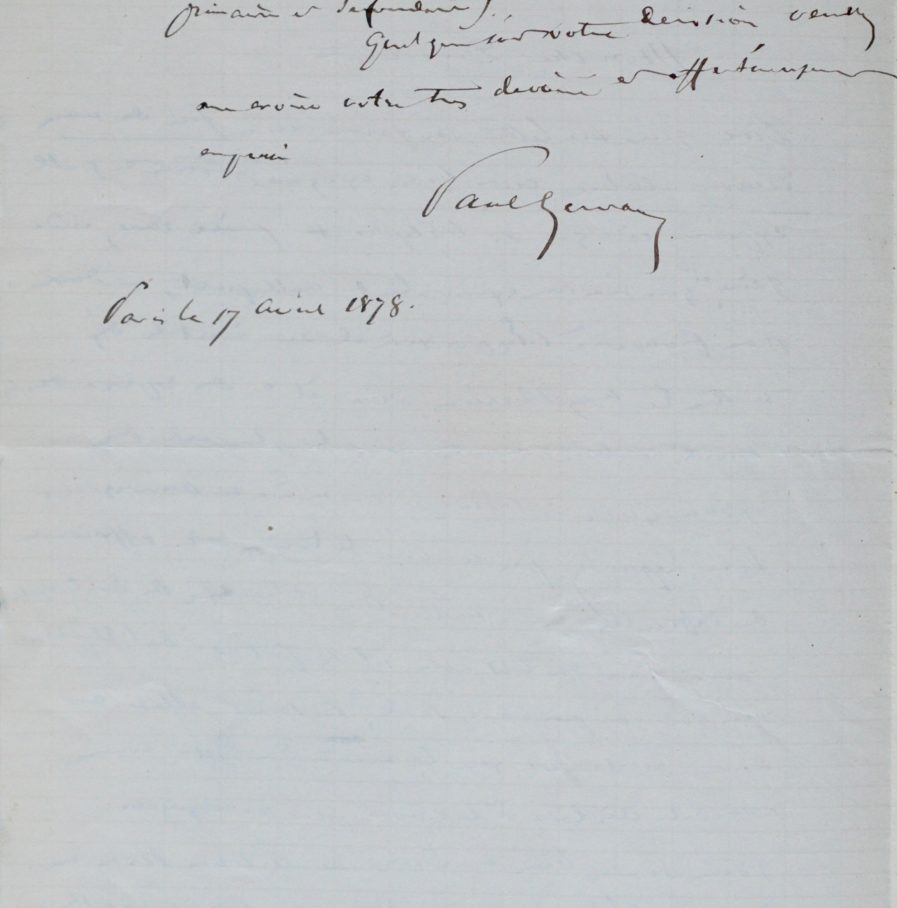 primaire et secondaire).
Quelque soit votre décision veuillez
me croire votre très dévoué et affectueusement
empressé
Paul Gervais
Paris le 17 avril 1878.